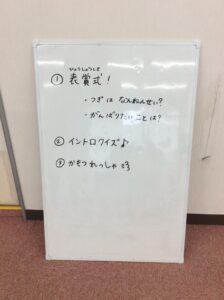 ひょうしょうしき
① 表賞式!
・つぎは なんねんせい?
・がんばりたいことは?
② イントロクイズ♪
③ かもつれっしゃ